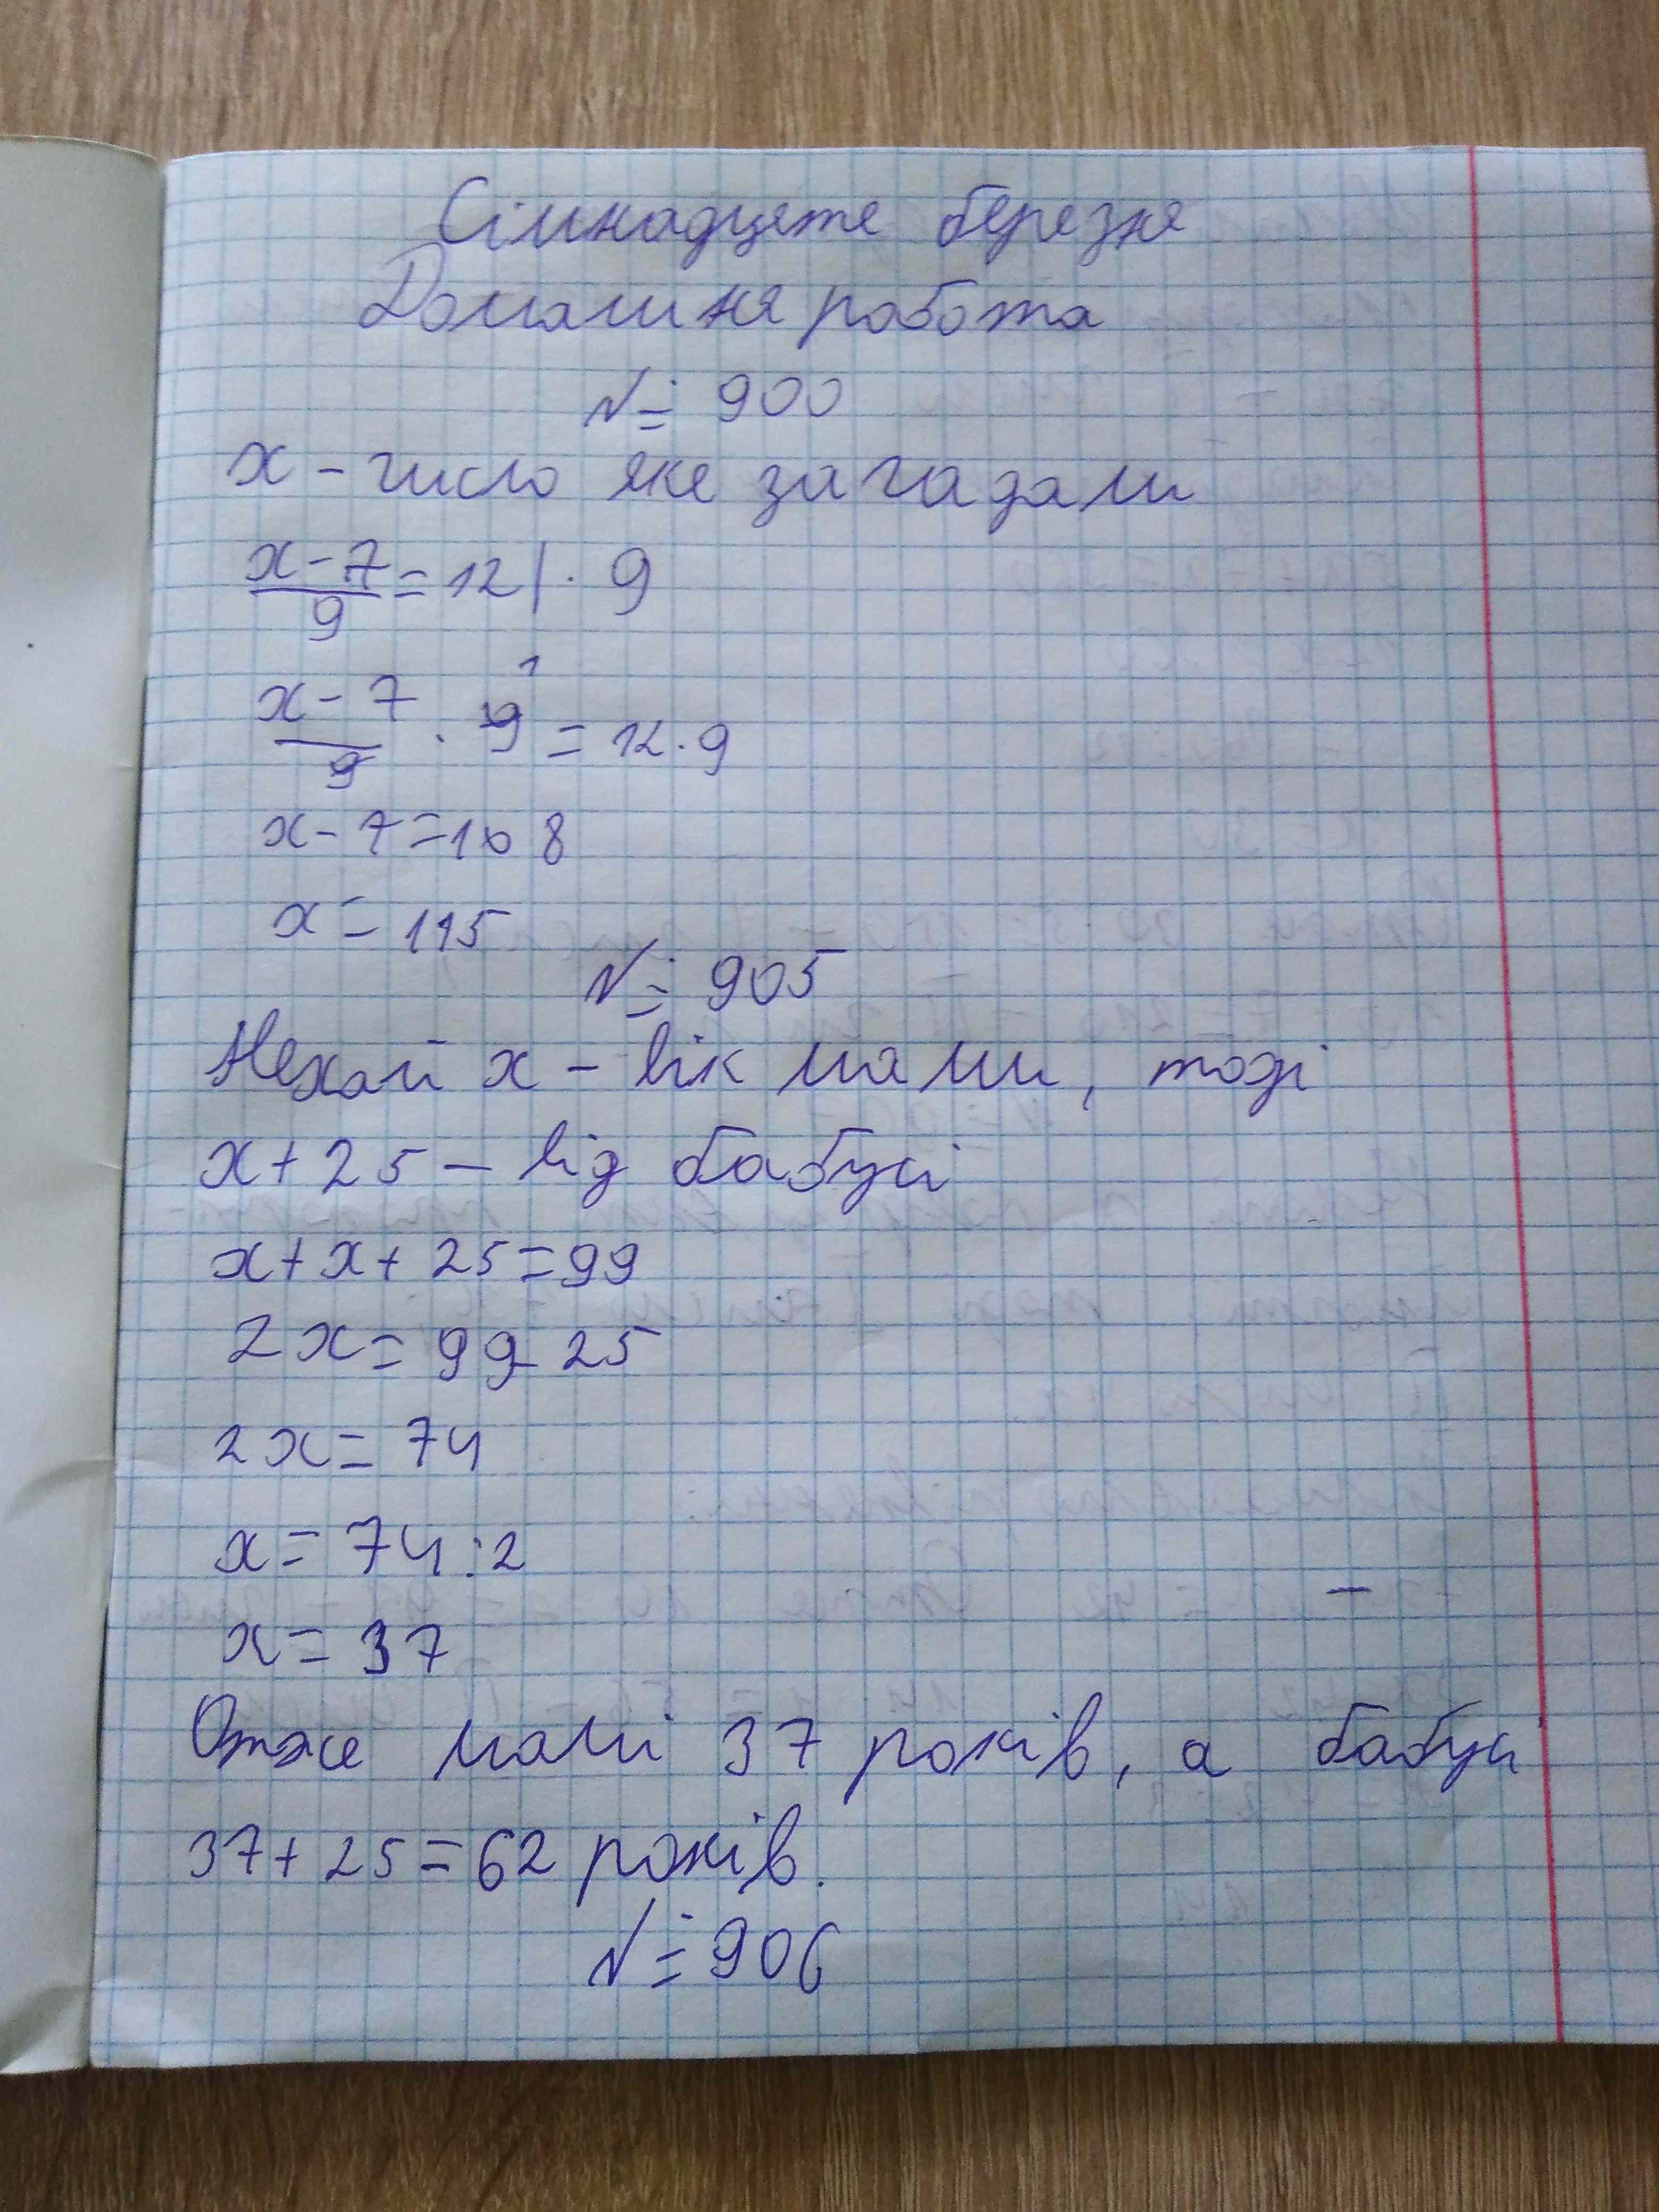 Сімнадцяте березня
Домашня робота
№ 900
x - число яке загадали
x - 7 / 9 = 12 | · 9
x - 7 / 9 · 9 ¹ = 12 · 9
x - 7 = 108
x = 115
№ 905
Нехай x - вік мами, тоді
x + 25 - від бабусі
x + x + 25 = 99
2x = 99 - 25
2x = 74
x = 74 : 2
x = 37
Отже мамі 37 років, а бабусі
37 + 25 = 62 років.
№ 906